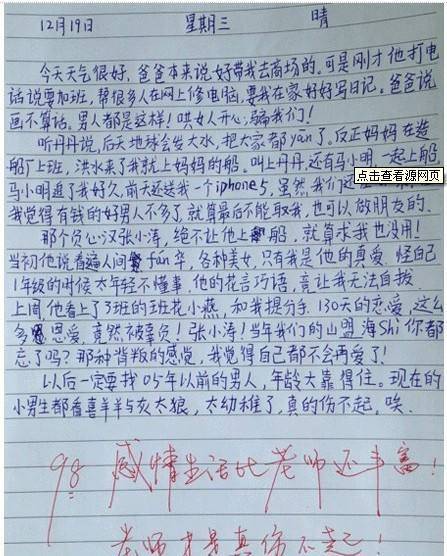 12月19日 星期三 晴
今天天气很好,爸爸本来说好带我去商场的。可是刚才他打电
话说要加班,帮很多人在网上修电脑,要我在家好好写日记。爸爸说
画不算话。男人都是这样!哄女人开心,骗我们!
听丹丹说,后天地球会发大水,把大家都yān了。反正妈妈在造
船厂上班,洪水来了我就上妈妈的船。叫上丹丹,还有马小明一起上船
马小明追了我好久,前天还送我一个iphone5,虽然,我们还
点击查看源网页
我觉得有钱的好男人不多了,就算最后不能取我,也可以做朋友的。
那个负心汉张小涛,绝不让他上船,就算求我也没用!
当初他说看遍人间fán华,各种美女,只有我是他的真爱,怪自己
1年级的时候太年轻不懂事,他的花言巧语,竟让我无法自拔。
上周他看上了3班的班花小燕,和我提分手,130天的恋爱,这么
多恩爱,竟然被辜负!张小涛!当年我们的山盟海Shi你都
忘了吗?那种背叛的感觉,我觉得自己都不会再爱了!
以后一定要找05年以前的男人,年龄大靠得住。现在的
小男生都看喜羊羊与灰太狼,太幼稚了,真的伤不起,唉。
98 感情生活比老师还丰富!
老师才是真伤不起!